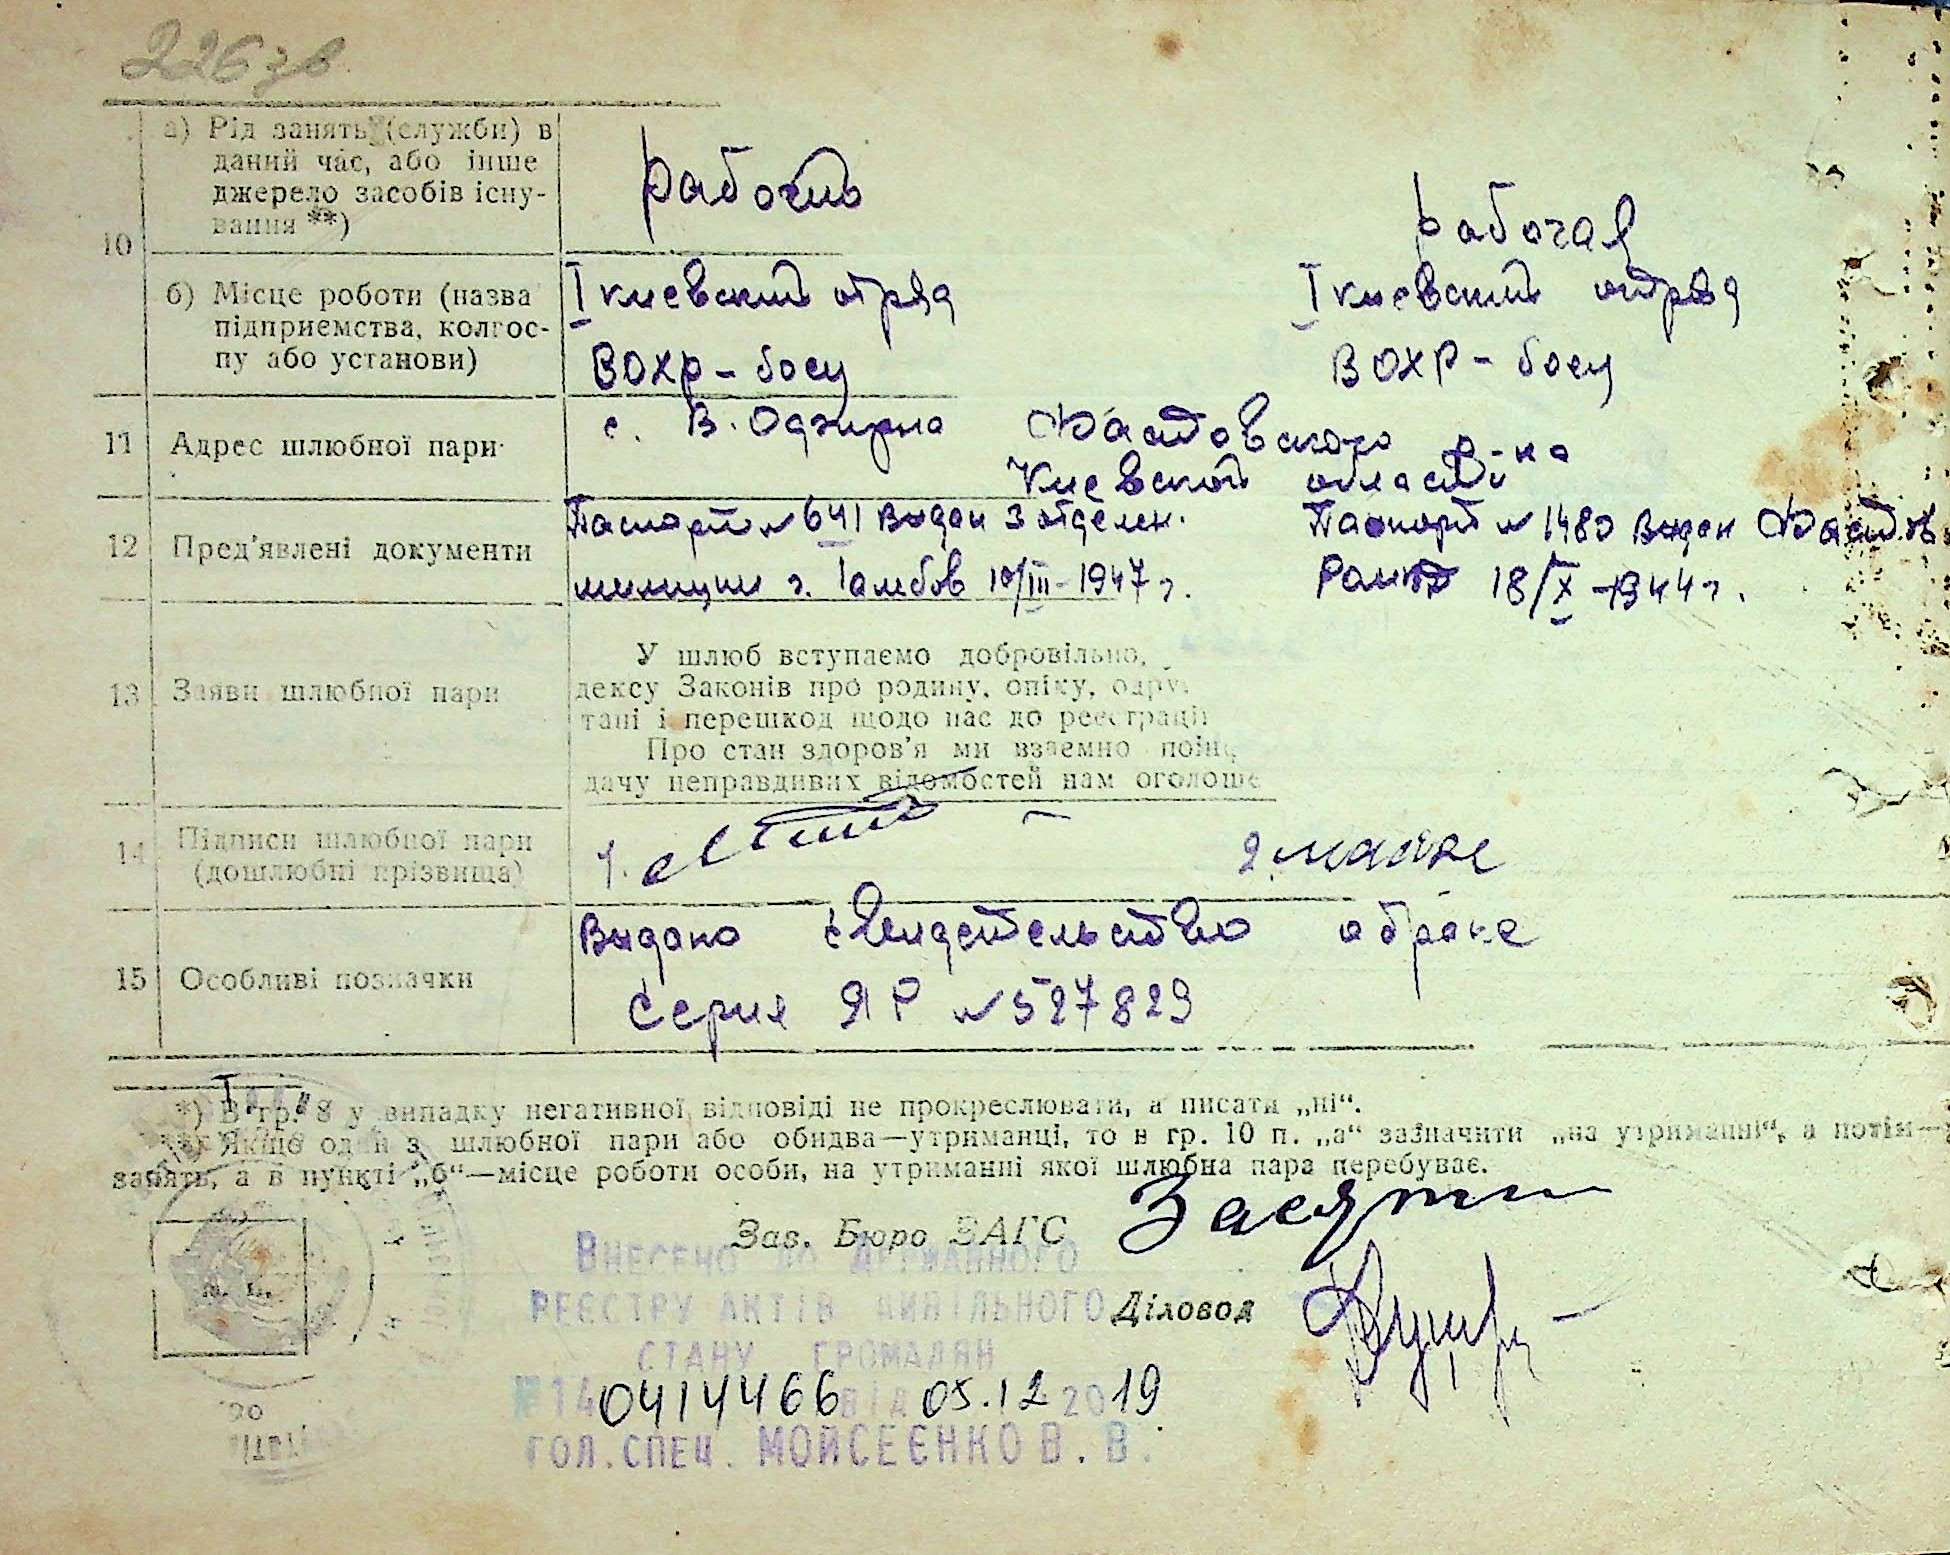 226 зв
а) Рід занять (служби) в
даний час, або інше
джерело засобів існу-
вання **)
рабочий
рабочая
10
б) Місце роботи (назва
підприємства, колгос-
пу або установи)
I киевский отряд
ВОХР -
I киевский отряд
ВОХР -
11 Адрес шлюбної пари
с. В. Фастовского р-на
Киевской области
12 Пред'явлені документи
Паспорт № 641 Выдан 3 отделен.
милиции г. Тамбов 10/III-1947 г.
Паспорт № 1480 Выдан
18/X - 1944 г.
13 Заяви шлюбної пари
У шлюб вступаємо добровільно,
дексу Законів про родину, опіку, одру
тані і перешкод щодо нас до реєстрації
Про стан здоров'я ми взаємно поін
дачу неправдивих відомостей нам оголоше
14 Підписи шлюбної пари
(дошлюбні прізвища)
1.
2.
15 Особливі позначки
Выдано свидетельство о браке
Серия ЯР № 527829
*) В гр. 8 у випадку негативної відповіді не прокреслювати, а писати „ні“.
**) Якщо один з шлюбної пари або обидва—утриманці, то в гр. 10 п. „а“ зазначити „на утриманні“, а потім—
занять, а в пункті „б“—місце роботи особи, на утриманні якої шлюбна пара перебуває.
Зав. Бюро ЗАГС
М. П.
Діловод
ВНЕСЕНО ДО ДЕРЖАВНОГО
РЕЄСТРУ АКТІВ ЦИВІЛЬНОГО
СТАНУ ГРОМАДЯН
№ 140414466 ВІД 05.12 2019
ГОЛ. СПЕЦ. МОЙСЕЄНКО В. В.